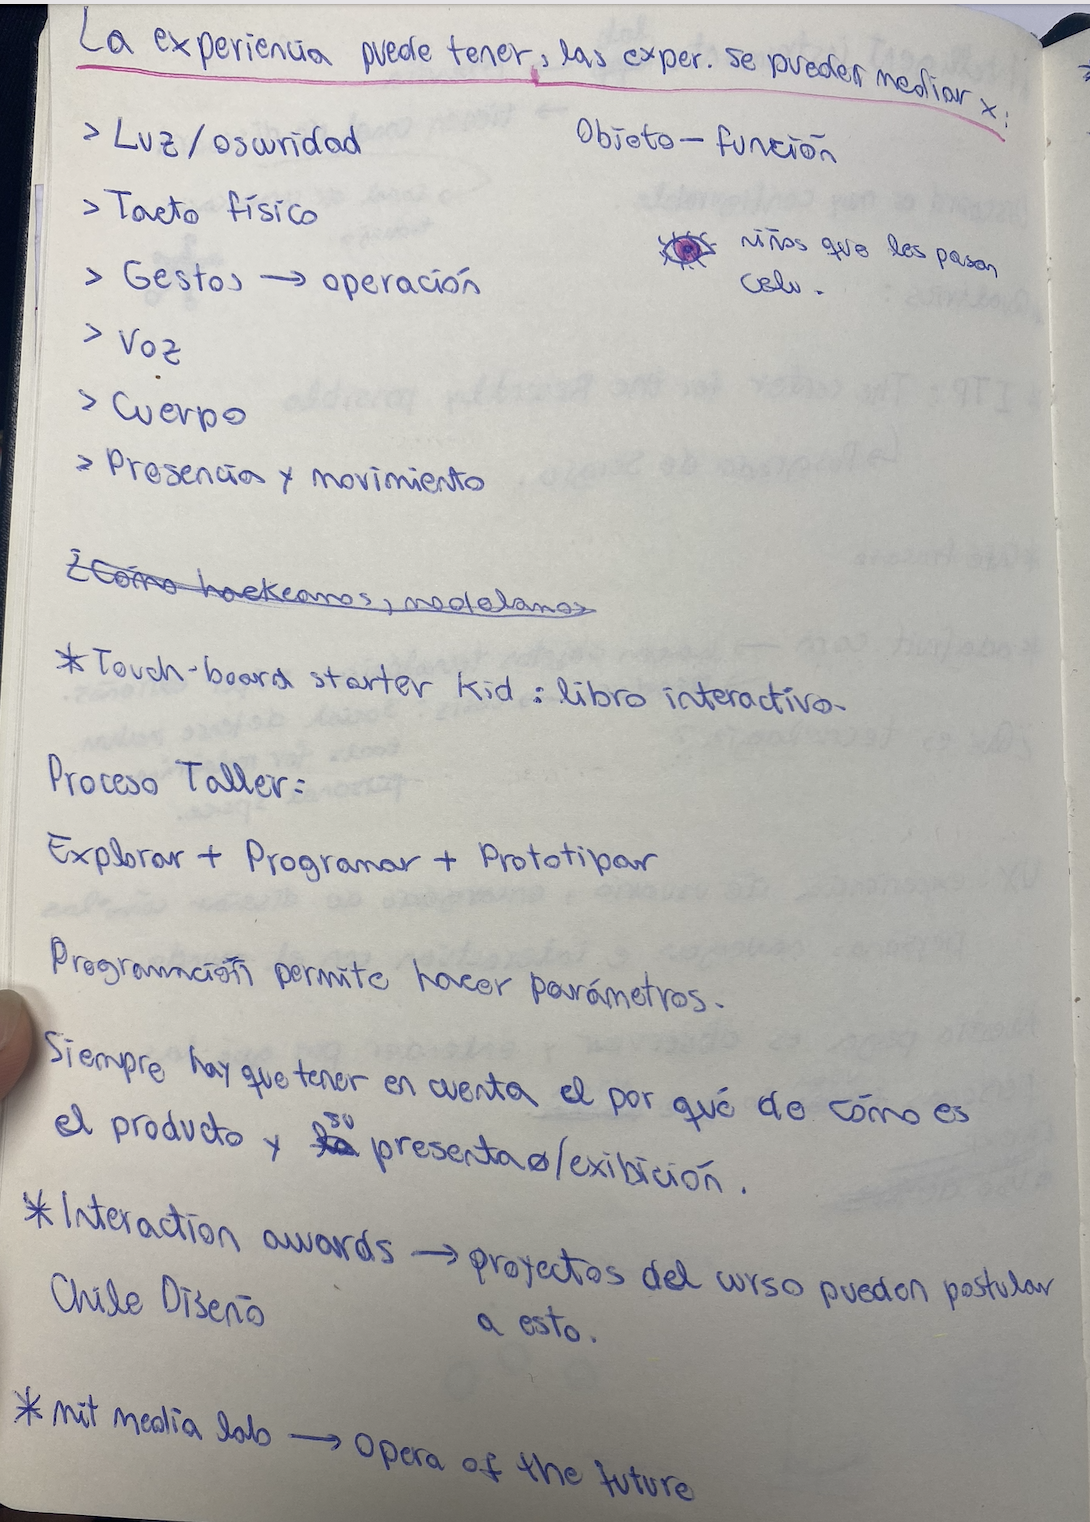 La experiencia puede tener; las exper. se pueden mediar x:
> Luz / oscuridad
Objeto – función
> Tacto físico
niños que les pasan
celu.
> Gestos → operación
> Voz
> Cuerpo
> Presencia y movimiento
¿Cómo hackeamos, modelamos
* Touch-board starter Kid : libro interactivo-
Proceso Taller:
Explorar + Programar + Prototipar
Programación permite hacer parámetros.
Siempre hay que tener en cuenta el por qué de cómo es
el producto y su presentaø/exibición.
* Interaction awards → proyectos del curso pueden postular
Chile Diseño
a esto.
* mit media lab → opera of the future